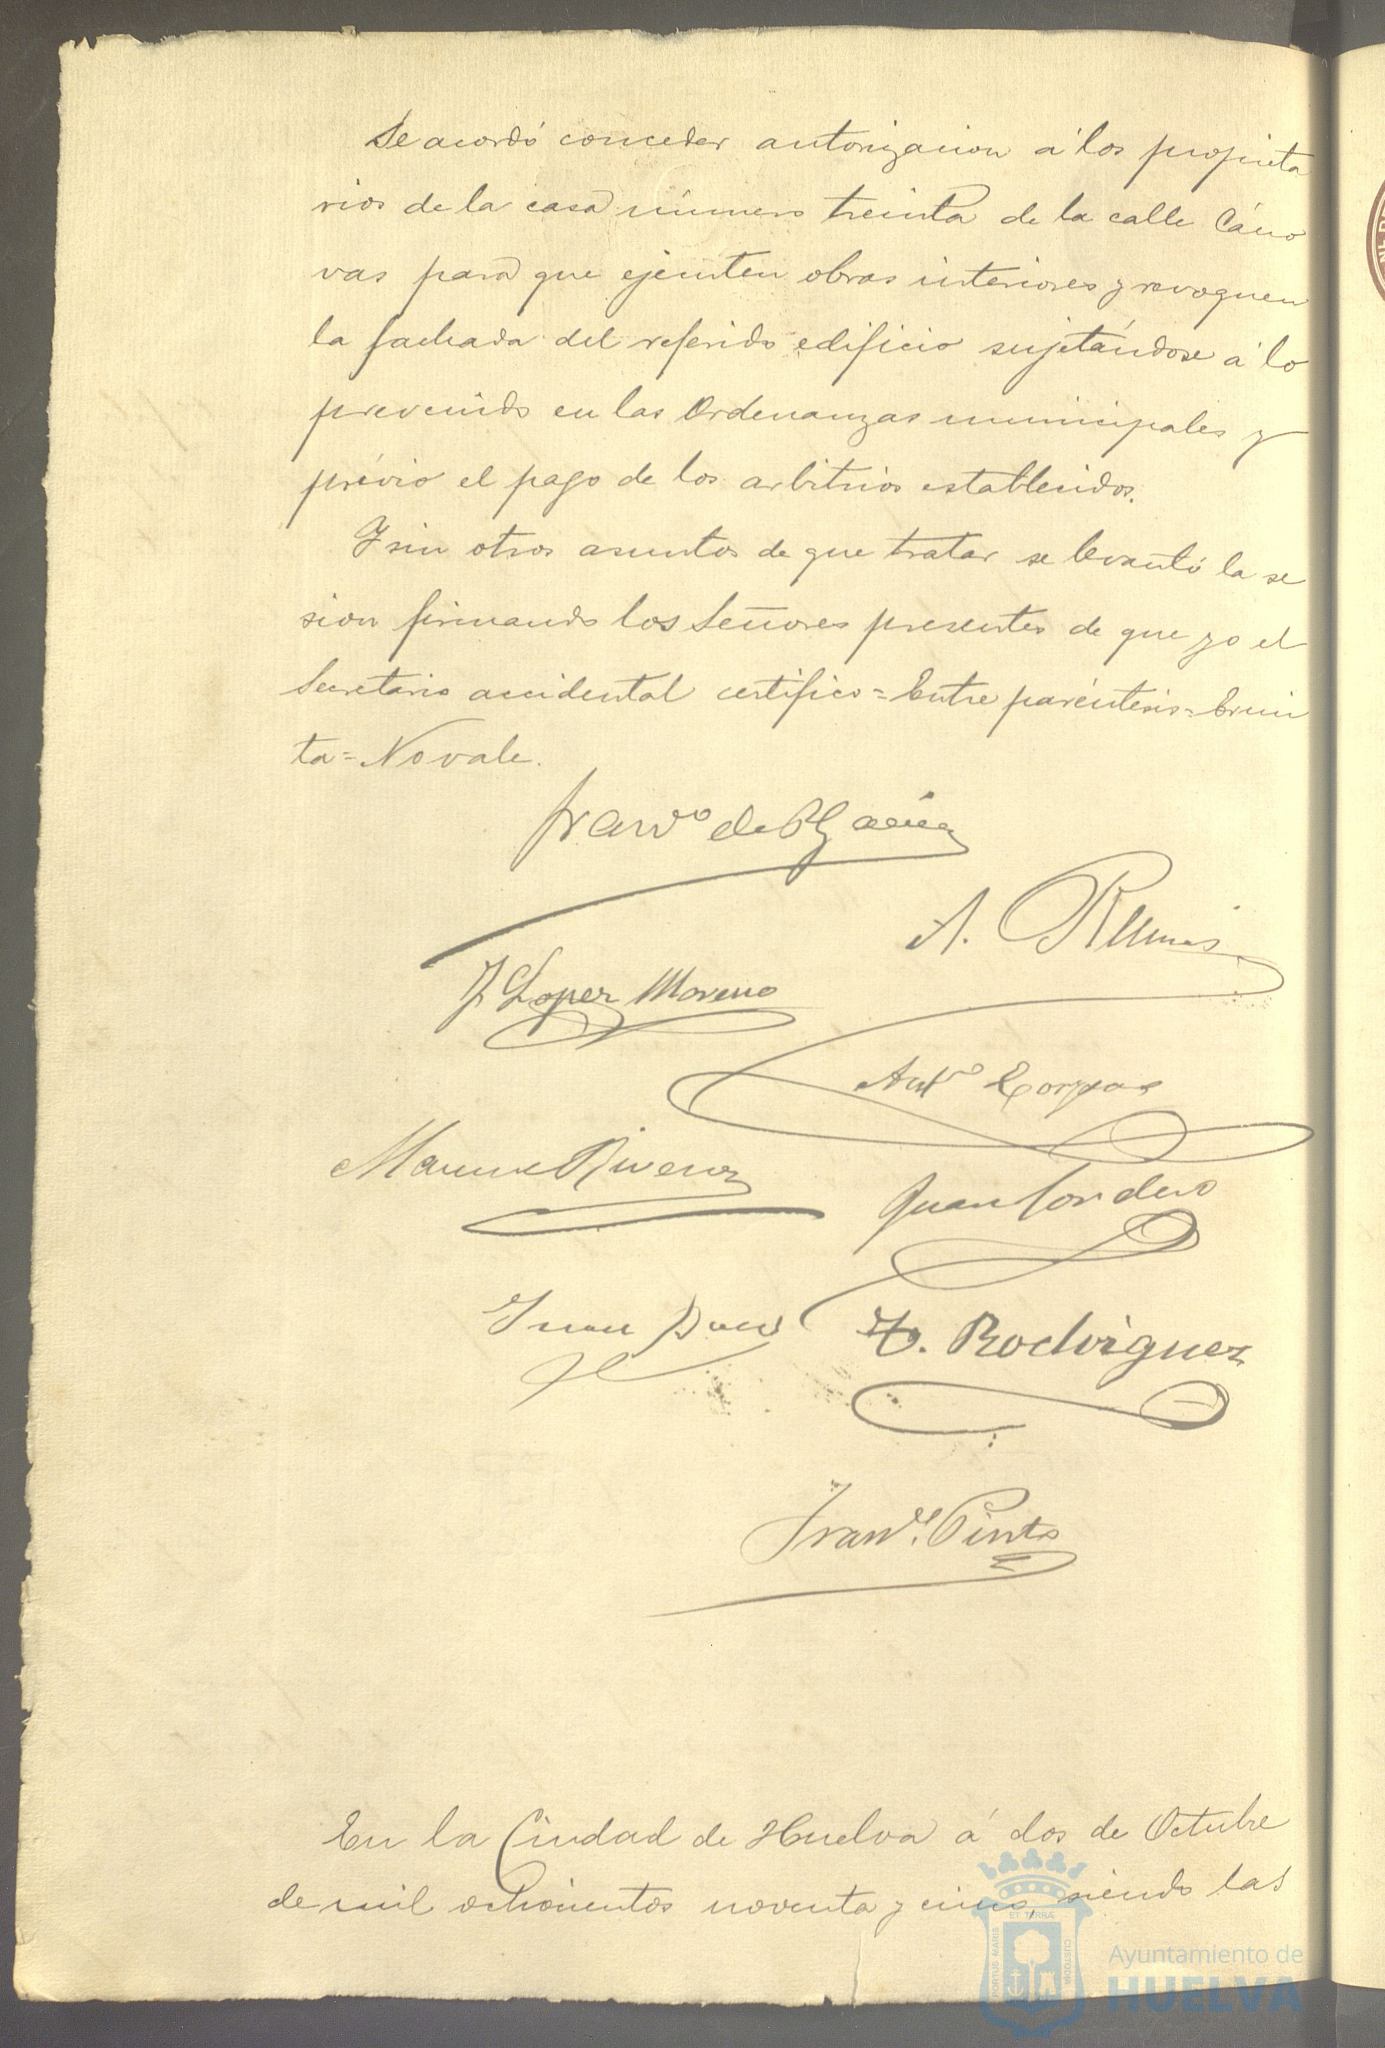 Se acordó conceder autorizacion á los propieta
rios de la casa número treinta de la calle Cáno
vas para que ejecuten obras interiores y revoquen
la fachada del referido edificio sujetándose á lo
prevenido en las Ordenanzas municipales y
prévio el pago de los arbitrios establecidos.
Y sin otros asuntos de que tratar se levantó la se
sion firmando los Señores presentes de que yo el
Secretario accidental certifico = Entre paréntesis =
ta = No vale.
Franco de P. García
A.
J Lopez Moreno
Anto
Manuel Rivera
Juan Cordero
Juan
Rodriguez
Pinto
En la Ciudad de Huelva á dos de Octubre
de mil ochocientos noventa y cinco, siendo las
PORTUS MARIS
ET TERRÆ
CUSTODIA
Ayuntamiento de
HUELVA